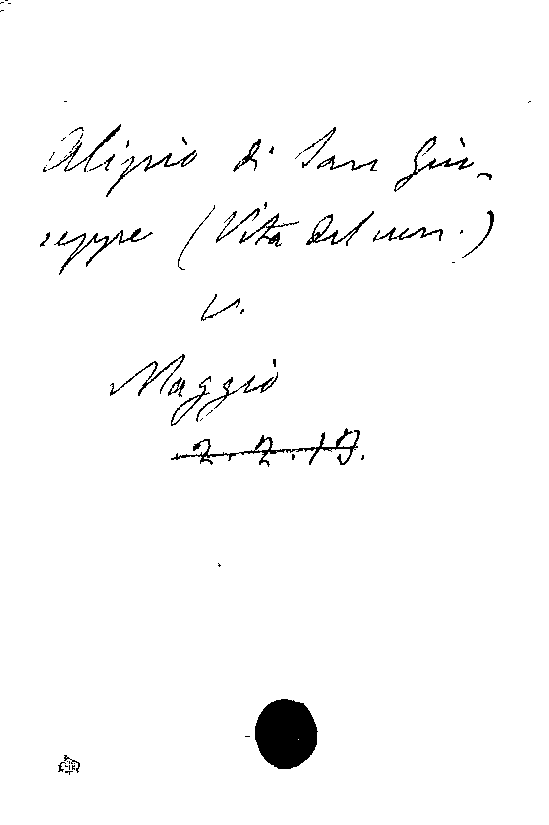 Alipio di San Giu-
seppe (Vita del ven.)
v.
Maggio
2. 2. 17.